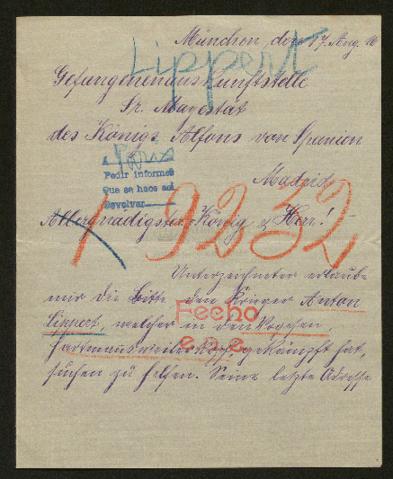 München, den 17. Aug. 16
Lippert
Gefangenenauskunftstelle
Sr. Mayestät
des Königs Alfons von Spanien
Madrid
A Paris
Pedir informes
Que se hace así
Devolver
Allergnädigster König u. Herr!
19232
Unterzeichneter erlaubt
mir die Bitte den Krieger Anton
Lippert, welcher in den Vogesen
Fecho
Hartmannsweilerkopf, gekämpft hat,
suchen zu helfen. Seine letzte Adresse